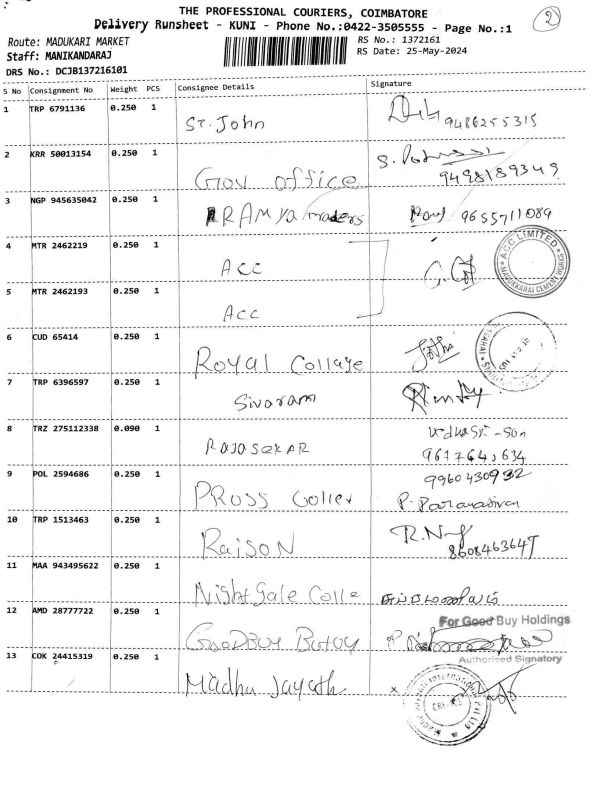 THE PROFESSIONAL COURIERS, COIMBATORE
Delivery Runsheet - KUNI - Phone No.:0422-3505555 - Page No.:1
2
Route: MADUKARI MARKET
RS No.: 1372161
Staff: MANIKANDARAJ
RS Date: 25-May-2024
DRS No.: DCJB137216101
S No Consignment No Weight PCS Consignee Details Signature
1 TRP 6791136 0.250 1 ST. John 9486255315
2 KRR 50013154 0.250 1 Gov office 9498189349
3 NGP 945635042 0.250 1 RAMYA Traders 9655711089
4 MTR 2462219 0.250 1 ACC
ACC LIMITED
MADUKKARAI CEMENT WORKS
5 MTR 2462193 0.250 1 ACC
6 CUD 65414 0.250 1 Royal Collage
7 TRP 6396597 0.250 1 Sivaram
8 TRZ 275112338 0.090 1 RAJASEKAR - Son
9677645634
9 POL 2594686 0.250 1 9960430932
P. Paramasivan
10 TRP 1513463 0.250 1 RaiSON R.
8608463647
11 MAA 943495622 0.250 1 NightGale Colle
12 AMD 28777722 0.250 1 GOODBUY
For Good Buy Holdings
Authorised Signatory
13 COK 24415319 0.250 1 Madhu Jayath